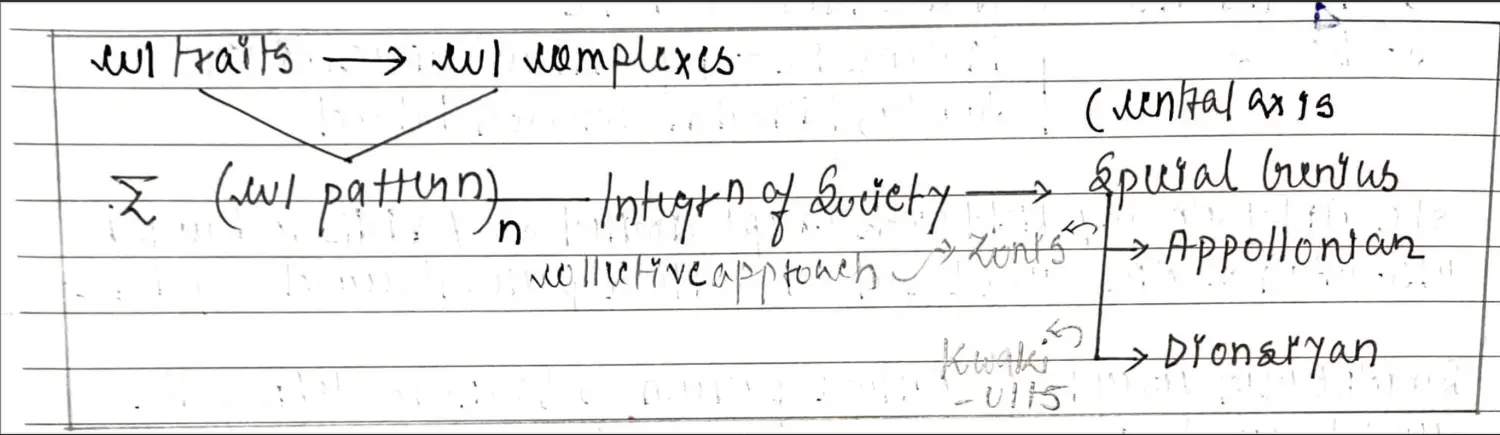 cul traits → cul complexes
(central axis
Σ (cul pattern)n — Integrn of Society → Special Genius
collective approach → Zunis ← → Appollonian
Kwaki ← → Dionsiyan
-utls